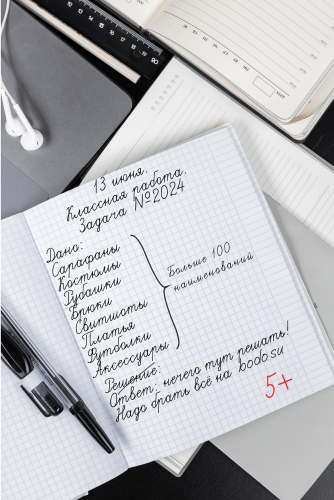 13 июня.
Классная работа.
Задача №2024
Дано:
Сарафаны
Костюмы
Рубашки
Брюки
Свитшоты
Платья
Футболки
Аксессуары
Больше 100
наименований
Решение:
Ответ: нечего тут решать!
Надо брать всё на bodo.su
5+